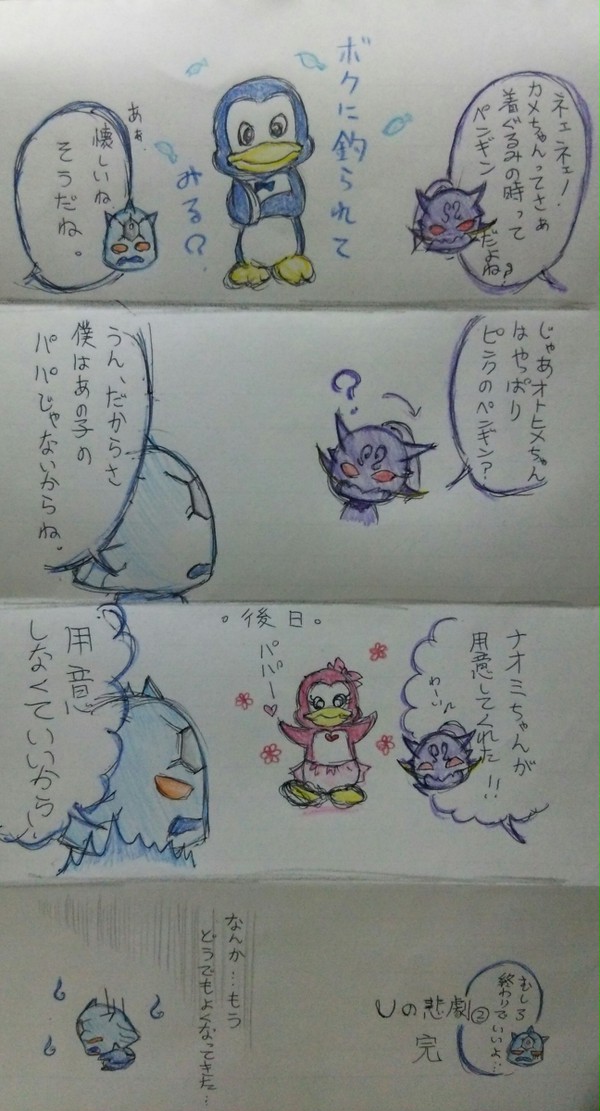 ネェネェ!
カメちゃんってさぁ
着ぐるみの時って
ペンギン
だよね?
ボクに釣られて
みる?
あぁ、
懐しいね
そうだね。
じゃあオトヒメちゃん
はやっぱり
ピンクのペンギン?
?
うん、だからさ
僕はあの子の
パパじゃないからね。
。後日。
ナオミちゃんが
用意してくれた!!
わーい
パパー♥
用意
しなくていいから!
なんか…もう
どうでもよくなってきた…
むしろ
終わりでいいよ…
Uの悲劇②
完